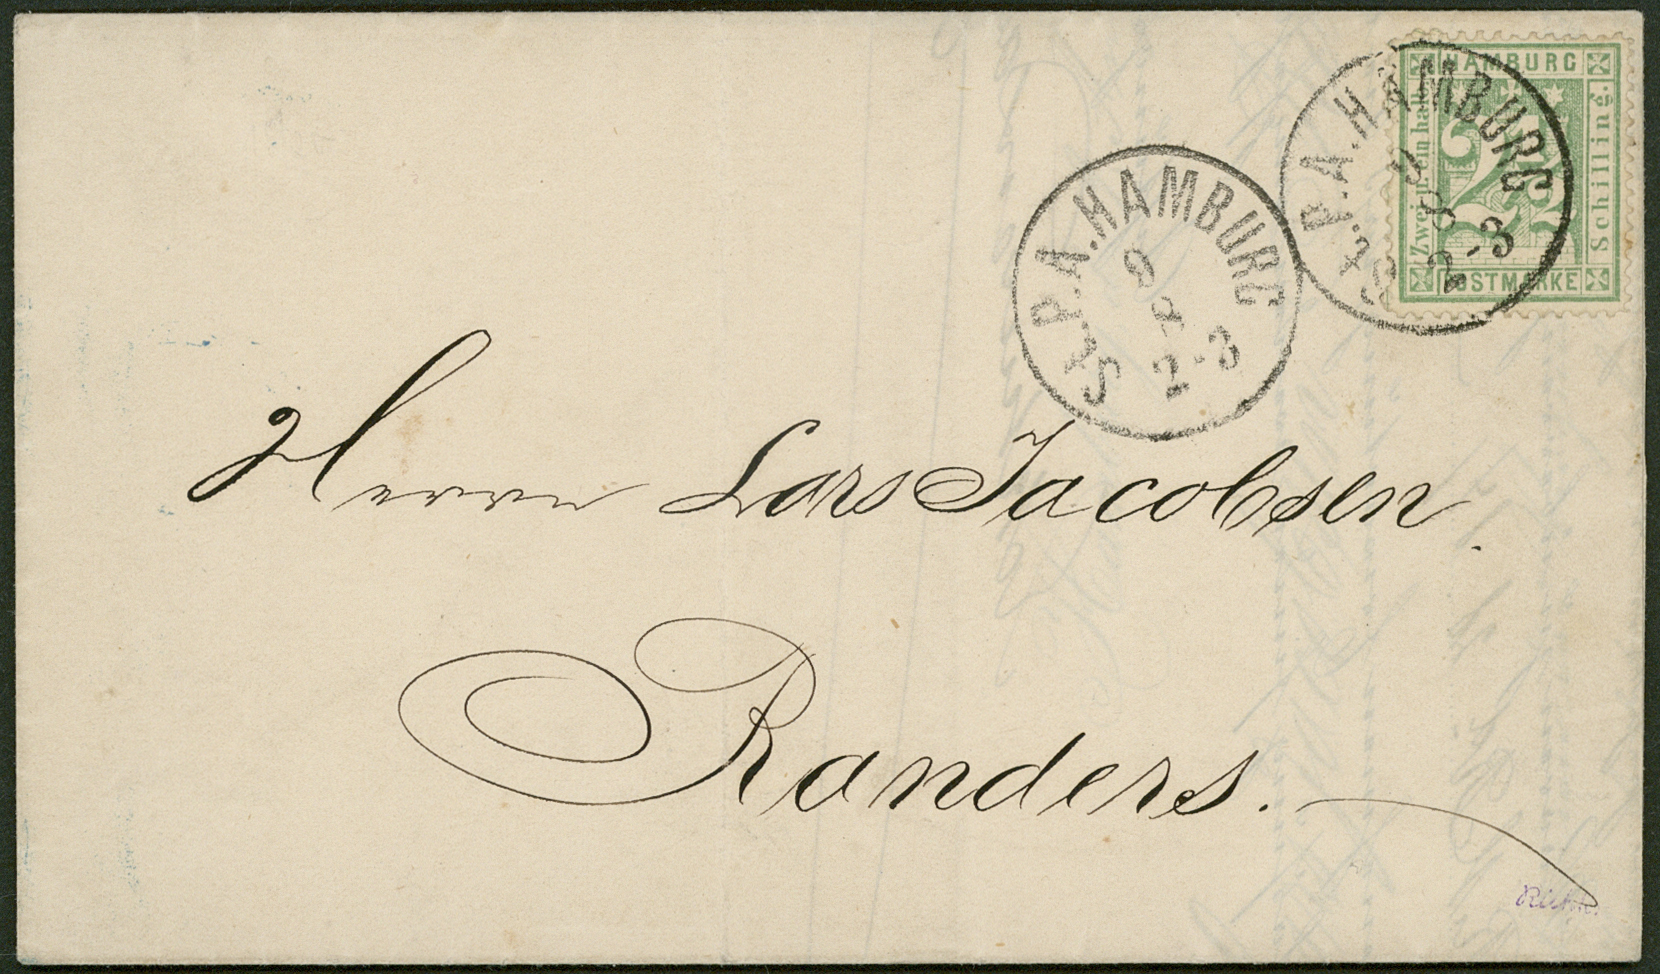 HAMBURG
Zwei u. ein halb
2½
Schilling.
POSTMARKE
ST.P.A.HAMBURG
9
8
2-3
ST.P.A.HAMBURG
9
8
2-3
Herrn Lars Jacobsen.
Randers.